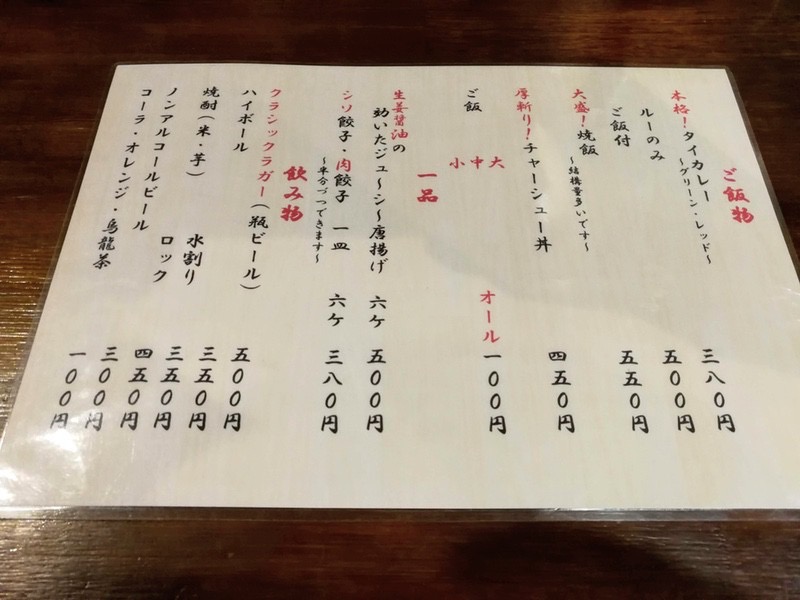 ご飯物
本格！タイカレー
～グリーン・レッド～
ルーのみ 三八〇円
ご飯付 五〇〇円
大盛！焼飯 五五〇円
～結構量多いです～
厚斬り！チャーシュー丼 四五〇円
ご飯 大中小 オール 一〇〇円
一品
生姜醤油の
効いたジュ～シ～唐揚げ 六ケ 五〇〇円
シソ餃子・肉餃子 一皿 六ケ 三八〇円
～半分づつできます～
飲み物
クラシックラガー（瓶ビール） 五〇〇円
ハイボール 三五〇円
焼酎（米・芋） 水割り 三五〇円
ロック 四五〇円
ノンアルコールビール 三〇〇円
コーラ・オレンジ・烏龍茶 一〇〇円